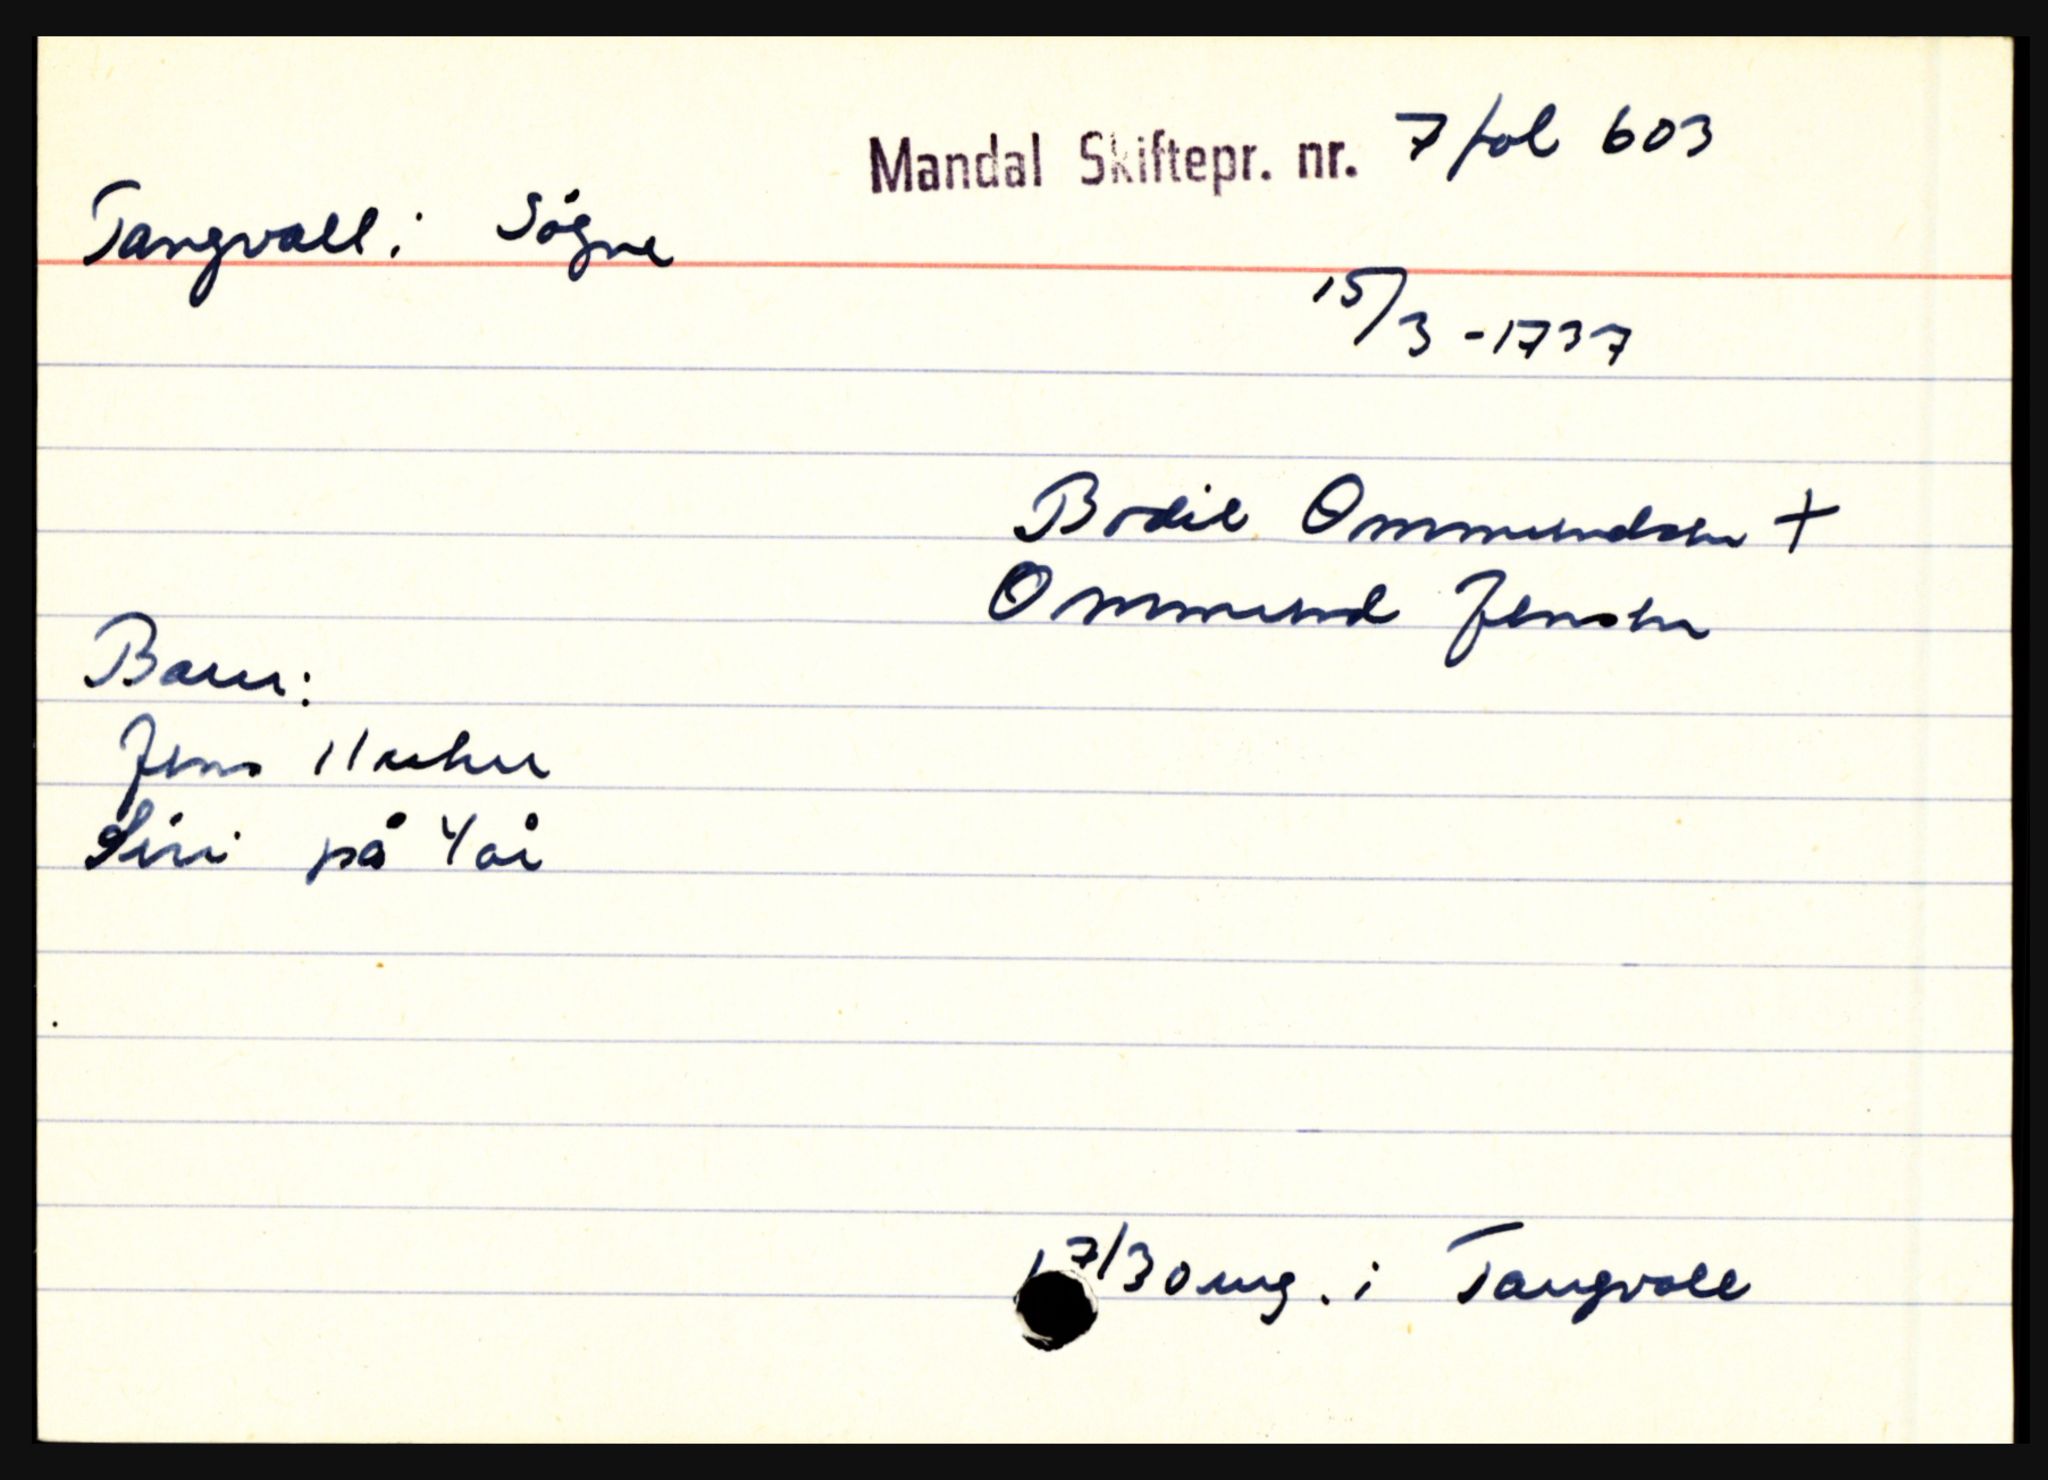 Mandal Skiftepr. nr. 7 fol 603
Tangvall i Sögne
15/3 - 1737
Bodil Ommundsen +
Ommund Jensen
Barn:
Jens 11 uker
Siri på 4 år
17/30 mg. i Tangvall